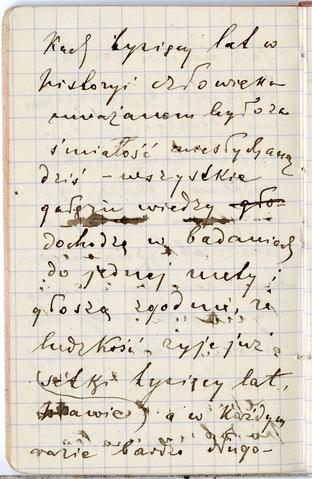 tysięcy lat w
historyi człowieka
uważanem było za
śmiałość niesłychaną
dziś – wszystkie
gałęzie wiedzy gło-
dochodzą w badaniach
do jednej mety i
głoszą zgodnie, że
ludzkość żyje już
setki tysięcy lat,
a w każdym
razie bardzo długo-